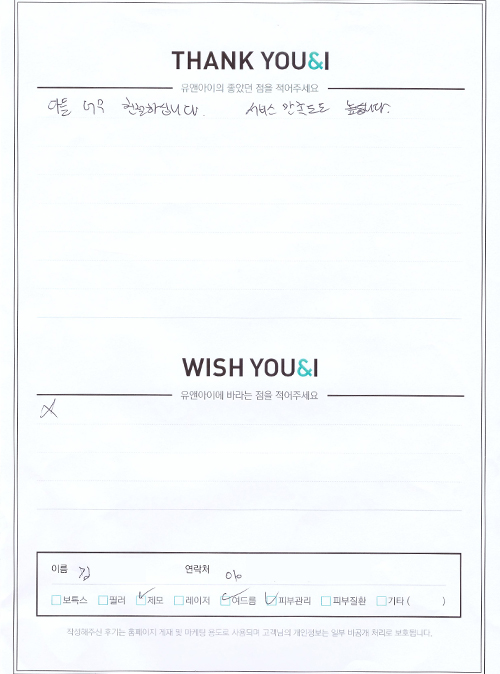 THANK YOU&I
유앤아이의 좋았던 점을 적어주세요
다들 너무 친절하십니다. 서비스 만족도도 높습니다.
WISH YOU&I
유앤아이에 바라는 점을 적어주세요
X
이름 김 연락처 010
보톡스 필러 제모 레이저 여드름 피부관리 피부질환 기타 ( )
작성해주신 후기는 홈페이지 게재 및 마케팅 용도로 사용되며 고객님의 개인정보는 일부 비공개 처리로 보호됩니다.